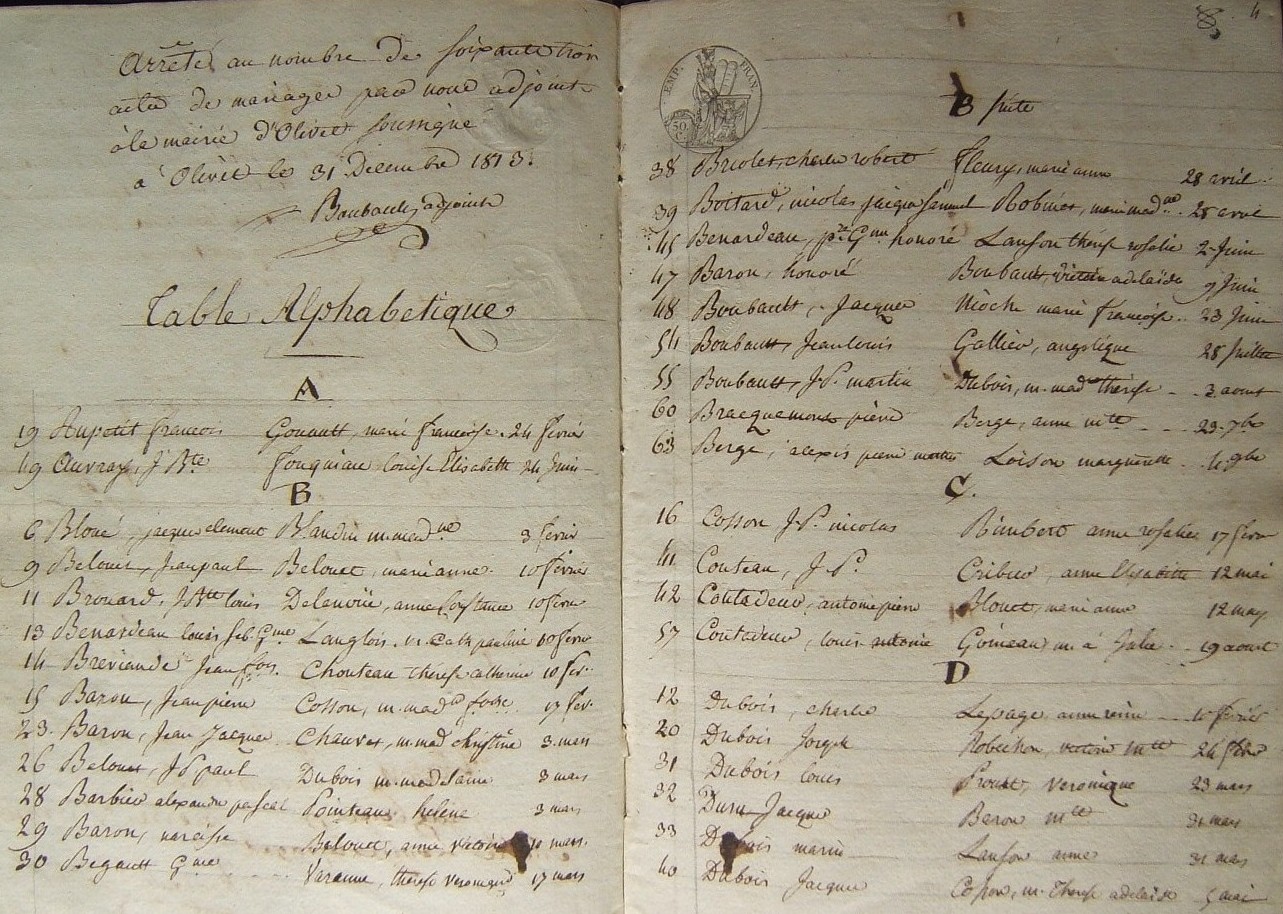 Arrêté au nombre de soixante trois
actes de mariages par nous adjoint
à la mairie d'Olivet soussigné
à Olivet le 31 Decembre 1813.
Boubault, adjoint
Table Alphabetique
A
19 Aupetit francois Gouault, marie francoise. 24 févrie
49 Auvray, J Bte Fouquiau louise Elisabeth 24 Juin
B
6 Bloué, jacque clement Blandin m. mad.ne 3 févrie
9 Belouet, Jean paul Belouet, marie anne. 10 févrie
11 Brouard, J Bte louis Delanoüe, anne Constance 10 févre
13 Benardeau louis feb. Gme Langlois, m. Cath pauline 10 févre
14 Breviande Jean fois. Chouteau thérèse catherine 10 fév.
15 Baron, Jean pierre Cosson, m. mad foise 17 fév.
23. Baron, Jean Jacque Chauvet, m. mad christine 3. mars
26 Belouet, J P paul Dubois m. madelaine 3 mars
28 Barbier alexandre pascal Pointeau helene 3 mars
29 Baron, narcisse Belouet, anne victoire mars.
30 Begault Gme Varenne, thérèse veronique 17 mars
4
EMP. FRAN.
50 C.
B suite
38 Briolet, charle robert Fleury, marie anne 28 avril.
39 Boitard, nicolas jacque samuel Robinet, marie mad.ne 28 avril
45 Benardeau, Gme honoré Lanson thérèse rosalie 2 Juin
47 Baron, honoré Boubault, adelaïde 9 Juin
48 Boubault, Jacque Nioche marie francoise. 23 Juin
54 Boubault, Jean louis Gallier, angelique 28 Juillet
55 Boubault, J P. martin Dubois, m. mad thérèse 3 aout
60 Bracquemont pierre Berge, anne mte 29. 7bre
63 Berge, alexis pierre Loison marguerite 4. 9bre
C.
16 Cosson J P. nicolas Rimbert anne rosalie 17 févre
41 Couteau, J P. Cribier, anne Elisabette 12 mai
42 Coutadeur, antoine pierre Blouet, marie anne 12 may
57 Coutadeur, louis antoine Goineau m. Julie. 19 aout
D
12 Dubois, charle Lepage anne reine 10 févrie
20 Dubois Joseph Robichon, victoire mte 24 févre
31 Dubois louis Proust, veronique 23 mars
32 Duru Jacque Baron mte 31 mars
33 Dubois marin Lanson anne 31 mars
40 Dubois Jacque Cosson, m. Thérèse adelaide 5 mai